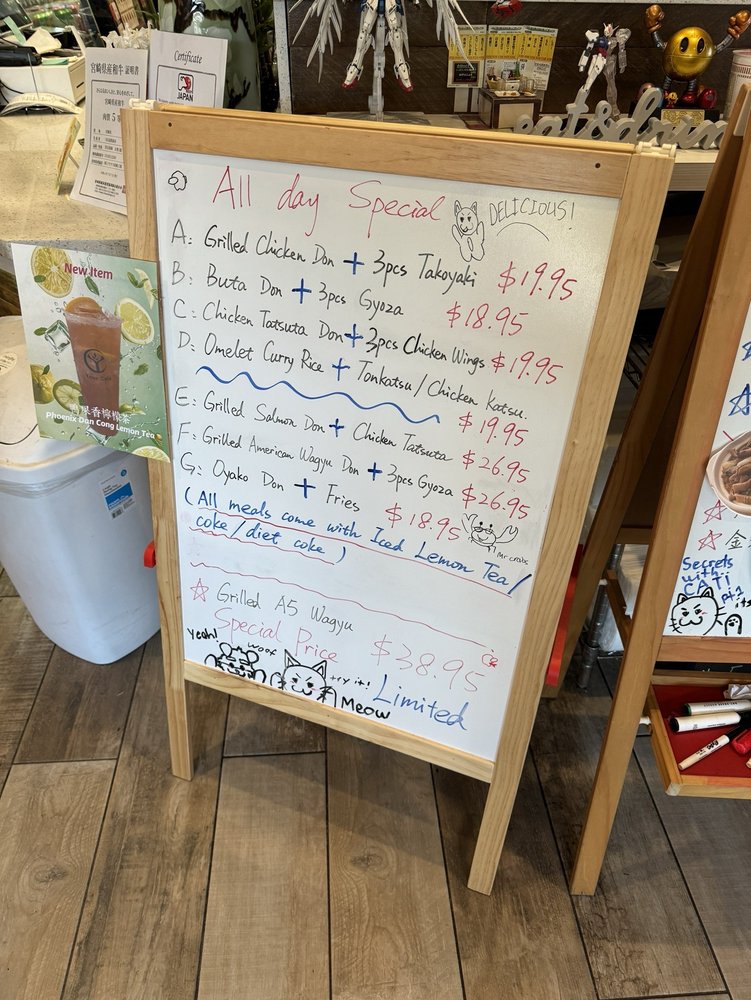 Certificate
JAPAN
宮崎県産和牛証明書
eat&drink
All day Special
DELICIOUS!
A: Grilled Chicken Don + 3pcs Takoyaki $19.95
B: Buta Don + 3pcs Gyoza $18.95
C: Chicken Tatsuta Don + 3pcs Chicken Wings $19.95
D: Omelet Curry Rice + Tonkatsu / Chicken Katsu.
$19.95
E: Grilled Salmon Don + Chicken Tatsuta $26.95
F: Grilled American Wagyu Don + 3pcs Gyoza $26.95
G: Oyako Don + Fries $18.95
Mr crabs
(All meals come with Iced Lemon Tea/
coke/diet coke)
Grilled A5 Wagyu
Special Price $38.95
Yeah!
woof
try it!
Meow
Limited
New Item
Phoenix Dan Cong Lemon Tea
金
Secrets
with
CAT!
pt.1
its